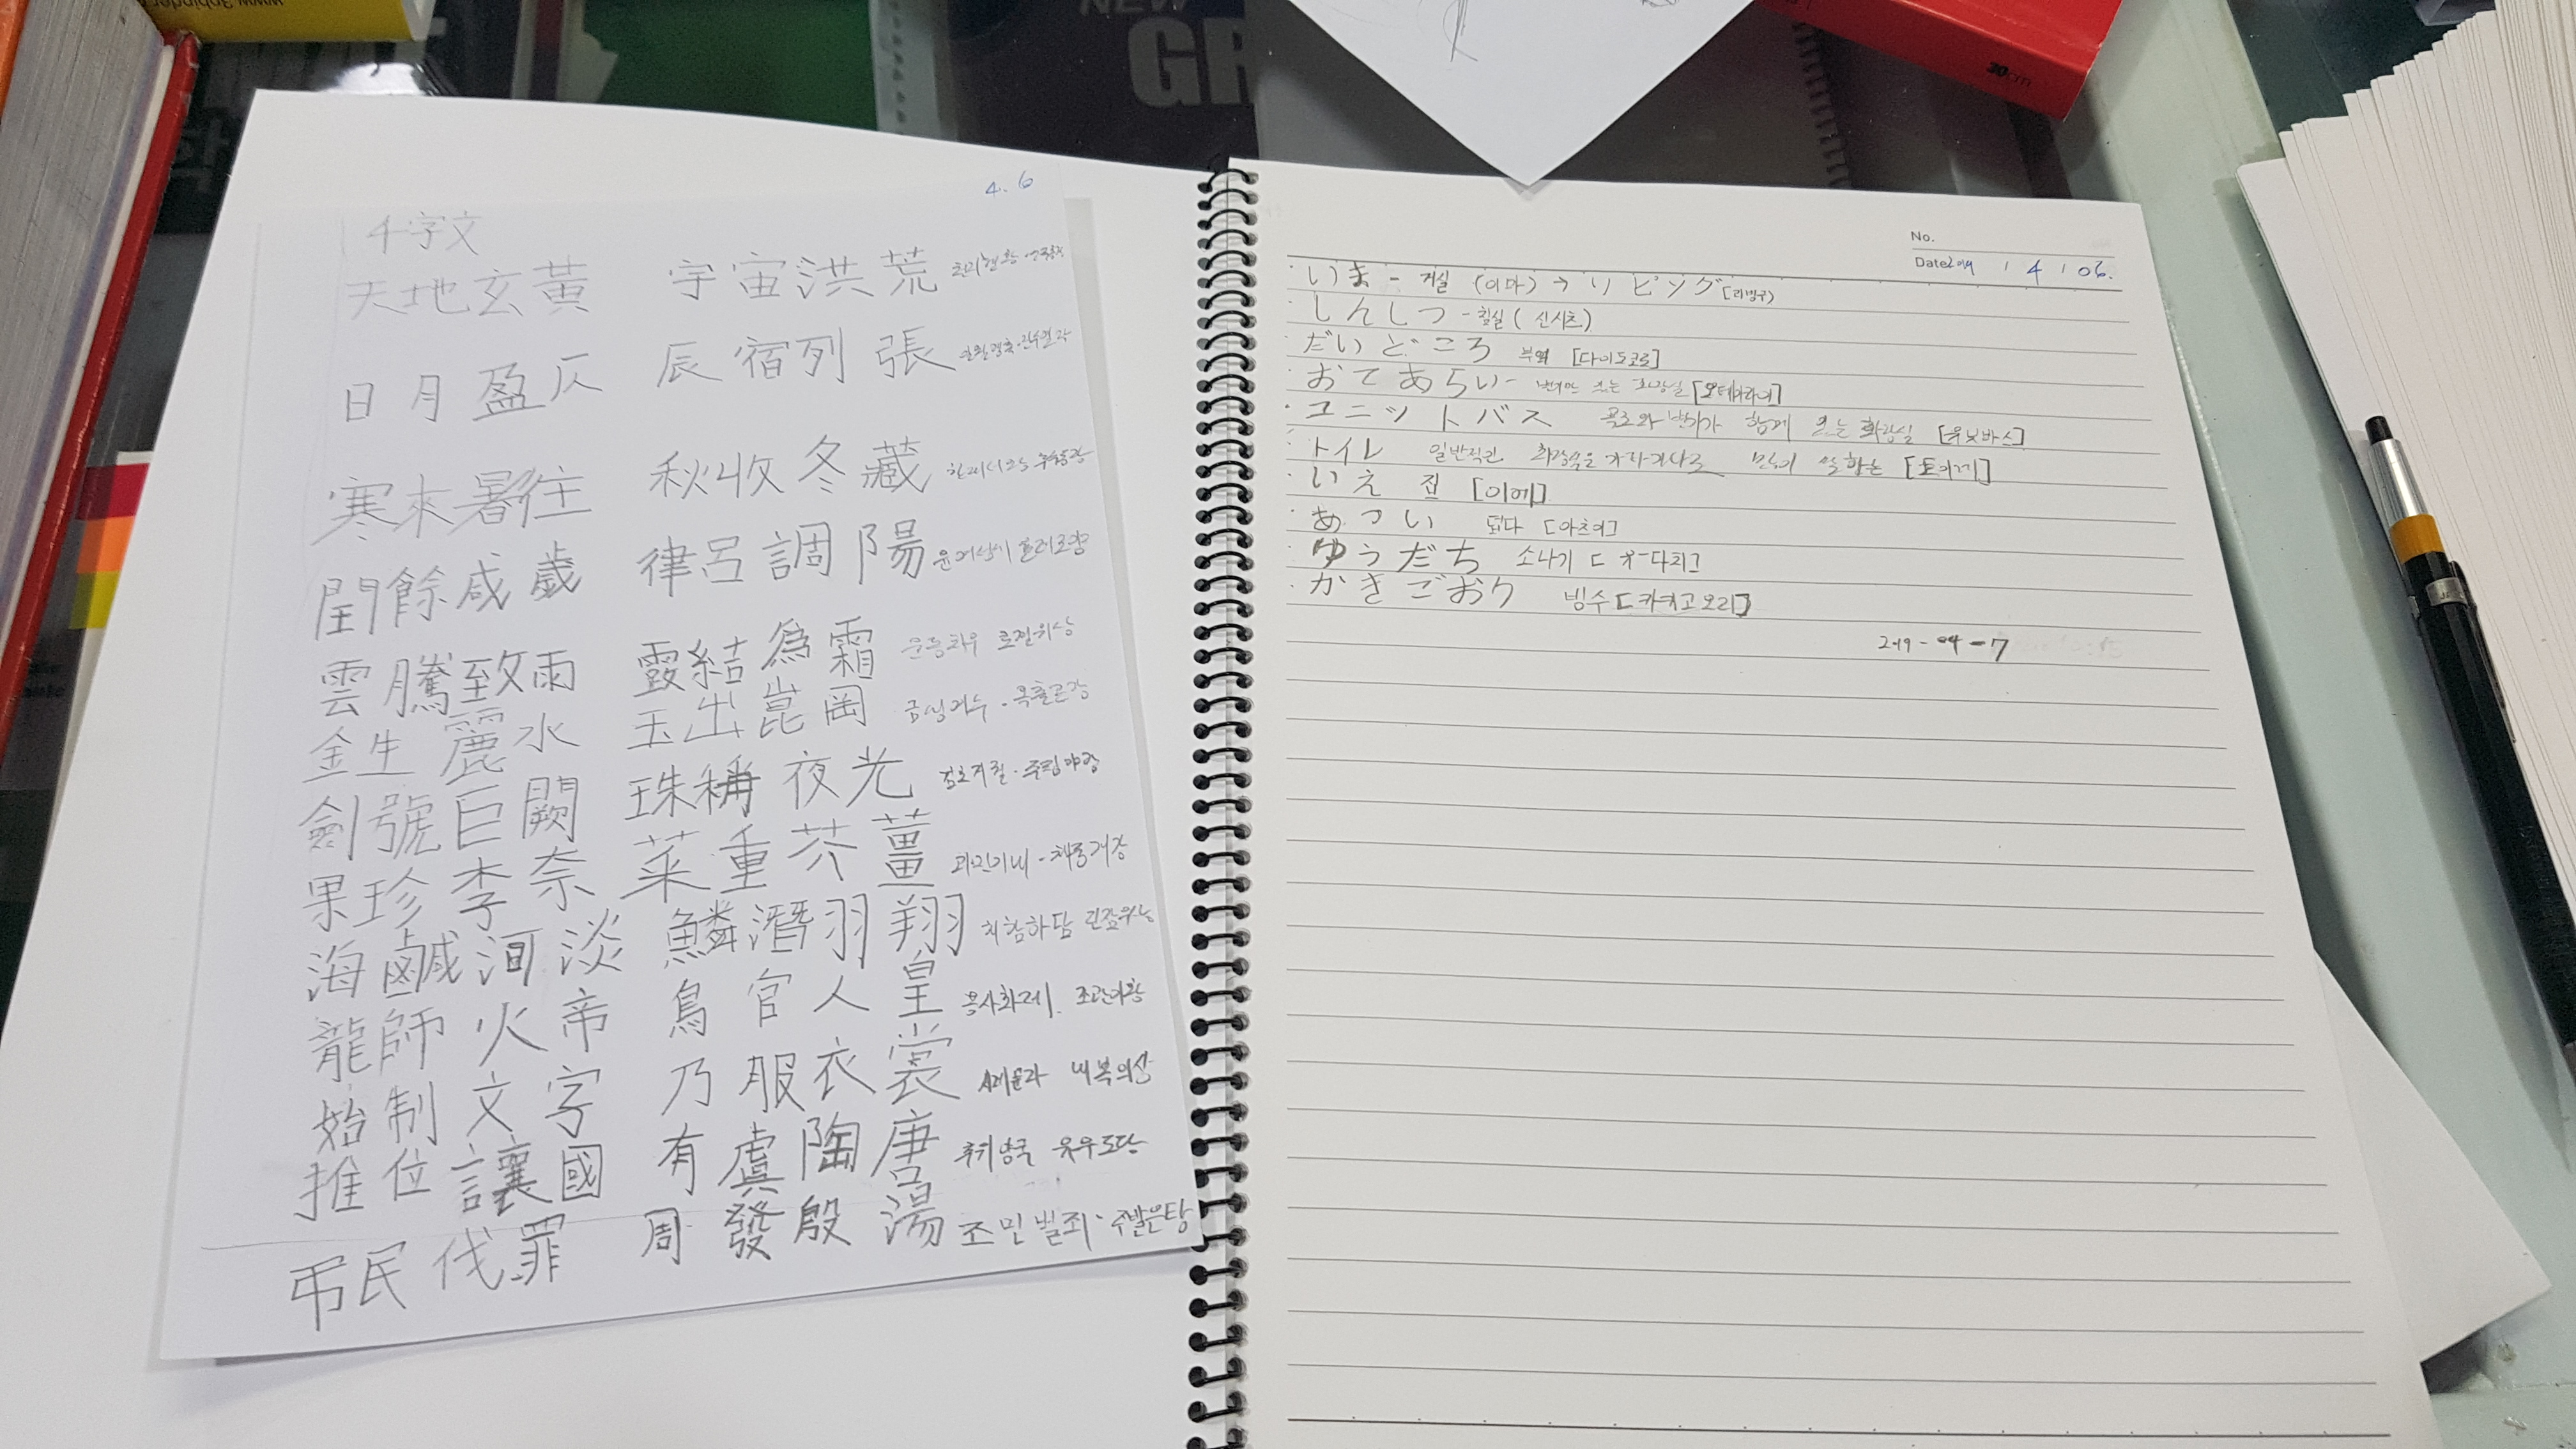 4. 6
千字文
天地玄黃 宇宙洪荒 천지현황·우주홍황
日月盈仄 辰宿列張 일월영측·진수열장
寒來暑往 秋收冬藏 한래서왕 추수동장
閏餘成歲 律呂調陽 윤여성세 율려조양
雲騰致雨 露結為霜 운등치우 로결위상
金生麗水 玉出崑岡 금생려수·옥출곤강
劍號巨闕 珠稱夜光 검호거궐·주칭야광
果珍李奈 菜重芥薑 과진이내·채중개강
海鹹河淡 鱗潛羽翔 해함하담 린잠우상
龍師火帝 鳥官人皇 용사화제. 조관인황
始制文字 乃服衣裳 시제문자 내복의상
推位讓國 有虞陶唐 추위양국 유우도당
弔民伐罪 周發殷湯 조민벌죄·주발은탕
No.
Date 2019 / 4 / 06.
·いま - 거실 (이마) → リビング [리빙구]
·しんしつ - 침실 (신시츠)
·だいどころ 부엌 [다이도코로]
·おてあらい - 변기만 있는 화장실 [오테아라이]
·ユニットバス 욕조와 변기가 함께 있는 화장실 [유닛바스]
·トイレ 일반적인 화장실을 많이 말하는 [토이레]
·いえ 집 [이에]
·あつい 덥다 [아츠이]
·ゆうだち 소나기 [유-다치]
·かきごおり 빙수 [카키고오리]
2019-04-7
NEW
GR
30cm